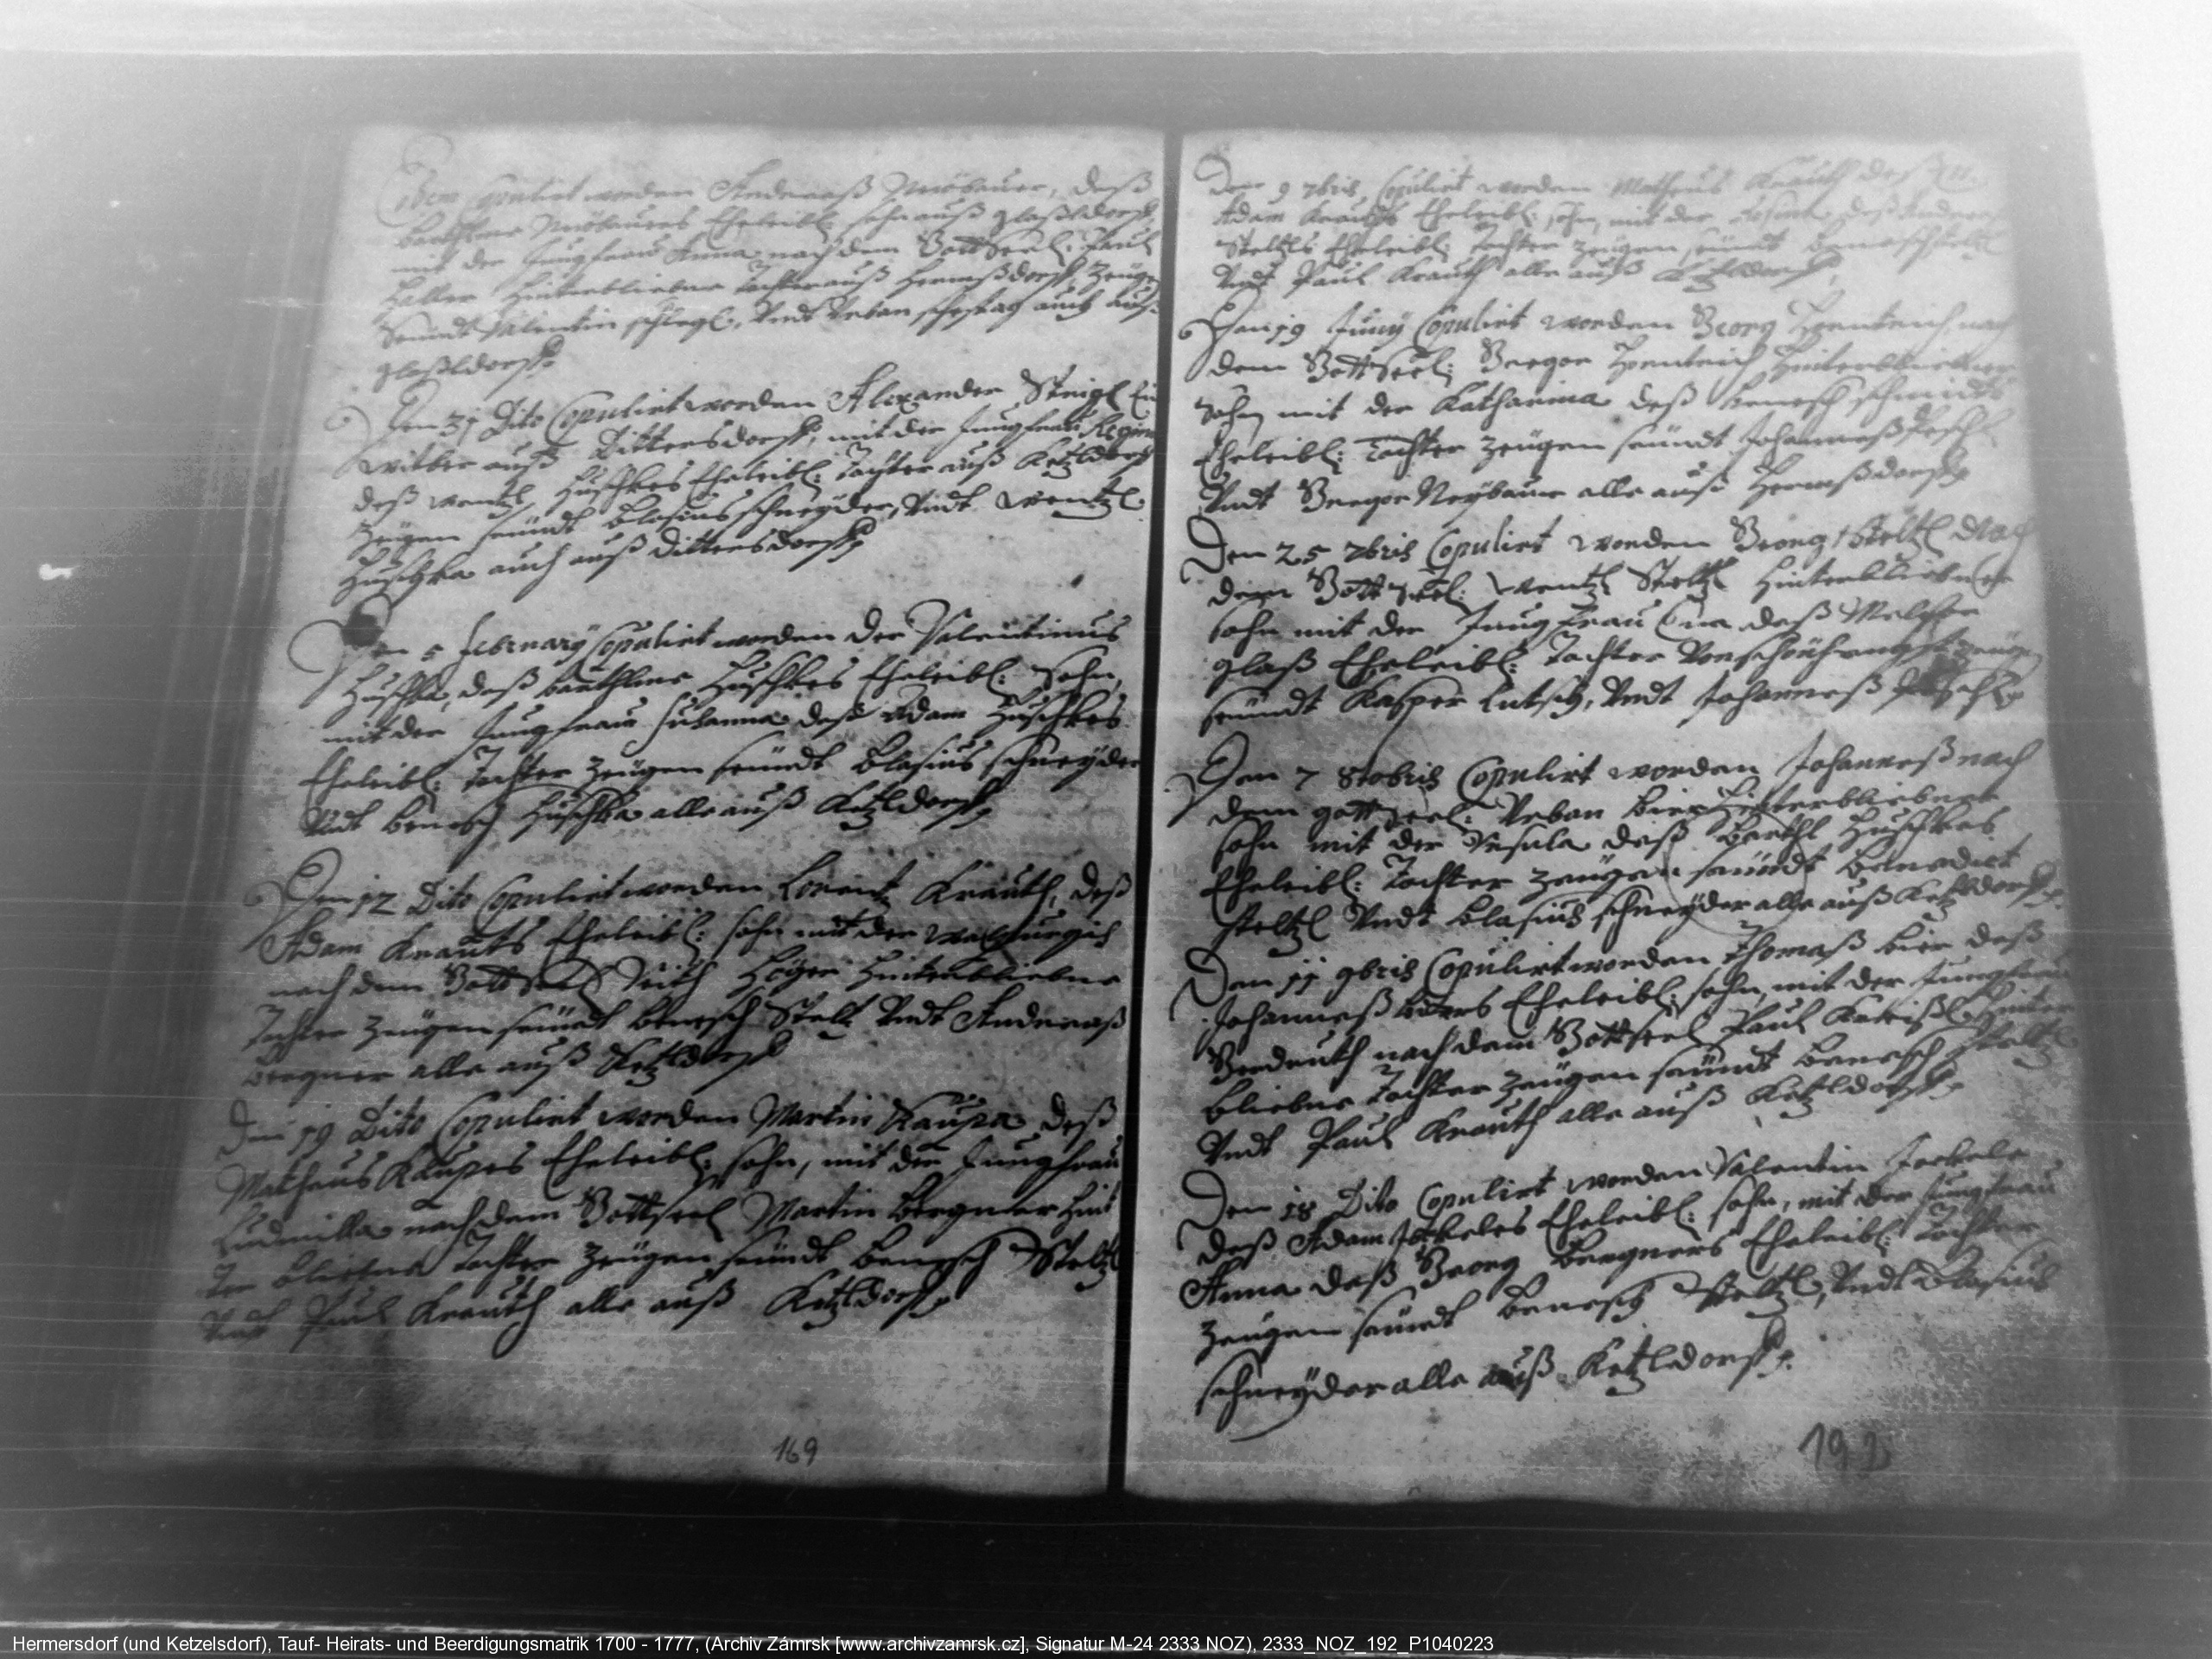 Eodem Copulirt worden Andereaß Neÿbauer, deß
Neÿbauers Eheleibl: sohn auß Glaßldorff
mit der Jungfrau Anna nach dem Gottseel: Paul
Haller Hinterbliebne Tochter auß Hermßdorff Zeüge
seindt Valentin schlegl, Vndt Urban auch auß
Glaßldorff
Den 31 Dito Copulirt worden Alexander Stenigl Ein
witber auß Dittersdorff, mit der Jungfrau Regina
deß wentzl Huschkes Eheleibl: Tochter auß Ketzldorff
Zeügen seündt Blasius schneÿder, Vndt wentzl
Huschka auch auß Dittersdorff
Den 5 februarÿ Copulirt worden der Valentinus
Huschka, deß barthlme Huschkes Eheleibl: Sohn,
mit der Jungfrau Susanna deß Adam Huschkes
Eheleibl: Tochter Zeügen seündt Blasius schneÿder
Vndt benesch Huschka alle auß Ketzldorff
Den 12 Dito Copulirt worden Lorentz Krauth, deß
Adam Krauts Eheleibl: sohn mit der
nach dem Gottseel Veith Höger Hinterbliebne
Tochter Zeügen seündt benesch Steltzl Vndt Andereaß
bergner alle auß Ketzldorff
Den 19 Dito Copulirt worden Martin Kaupa deß
Matheus Kaupes Eheleibl: sohn, mit der Jungfrau
Ludmilla nach dem Gottseel Martin bergner Hint
ter bliebna Tochter Zeügen seündt benesch Steltzl
Vndt Paul Krauth alle auß Ketzldorff
169
Den 9 7bris Copulirt worden Matheus Krauth deß
Adam Krauths Eheleibl: sohn, mit der Rosina deß Anderea
Steltzls Eheleibl: Tochter Zeügen seündt benesch steltzl
Vndt Paul Krauth alle auß Ketzldorff
Den 19 Junÿ Copulirt worden Georg Hentrich nach
dem Gottseel: Gregor Hentrich Hinterbliebner
Sohn mit der Katharina deß benesch schmidts
Eheleibl: Tochter Zeügen seündt Johanneß Peschl
Vndt Gregor Neÿbauer alle auß Hermßdorff
Den 25 7bris Copulirt worden Georg Steltzl Nach
dem Gottseel: wentzl Steltzl Hinterbliebner
sohn mit der Jungfrau Eva deß Melcher
Glaß Eheleibl: Tochter Von Zeüge
seündt Kasper Lutsch, Vndt Johanneß Peschl
Den 7 8tobris Copulirt worden Johanneß nach
dem gottseel: Urban bier Hinterbliebner
sohn mit der Ursula deß barthl Huschkes
Eheleibl: Tochter Zeügen seündt benedict
steltzl Vndt blasius schneÿder alle auß Ketzldorff
Den 11 9bris Copulirt worden Thomaß bier deß
Johanneß biers Eheleibl: sohn, mit der Jungfrau
Gerdruth nach dem Gottseel Paul Hinter
bliebne Tochter Zeügen seündt benesch steltzl
Vndt Paul Krauth alle auß Ketzldorff
Den 18 Dito Copulirt worden Valentin Jeckele
deß Adam Jeckeles Eheleibl: sohn, mit der Jungfrau
Anna deß Georg bergners Eheleibl: Tochter
Zeügen seündt benesch steltzl, Vndt Blasius
schneÿder alle auß Ketzldorff
192
Hermersdorf (und Ketzelsdorf), Tauf- Heirats- und Beerdigungsmatrik 1700 - 1777, (Archiv Zámrsk [www.archivzamrsk.cz], Signatur M-24 2333 NOZ), 2333_NOZ_192_P1040223